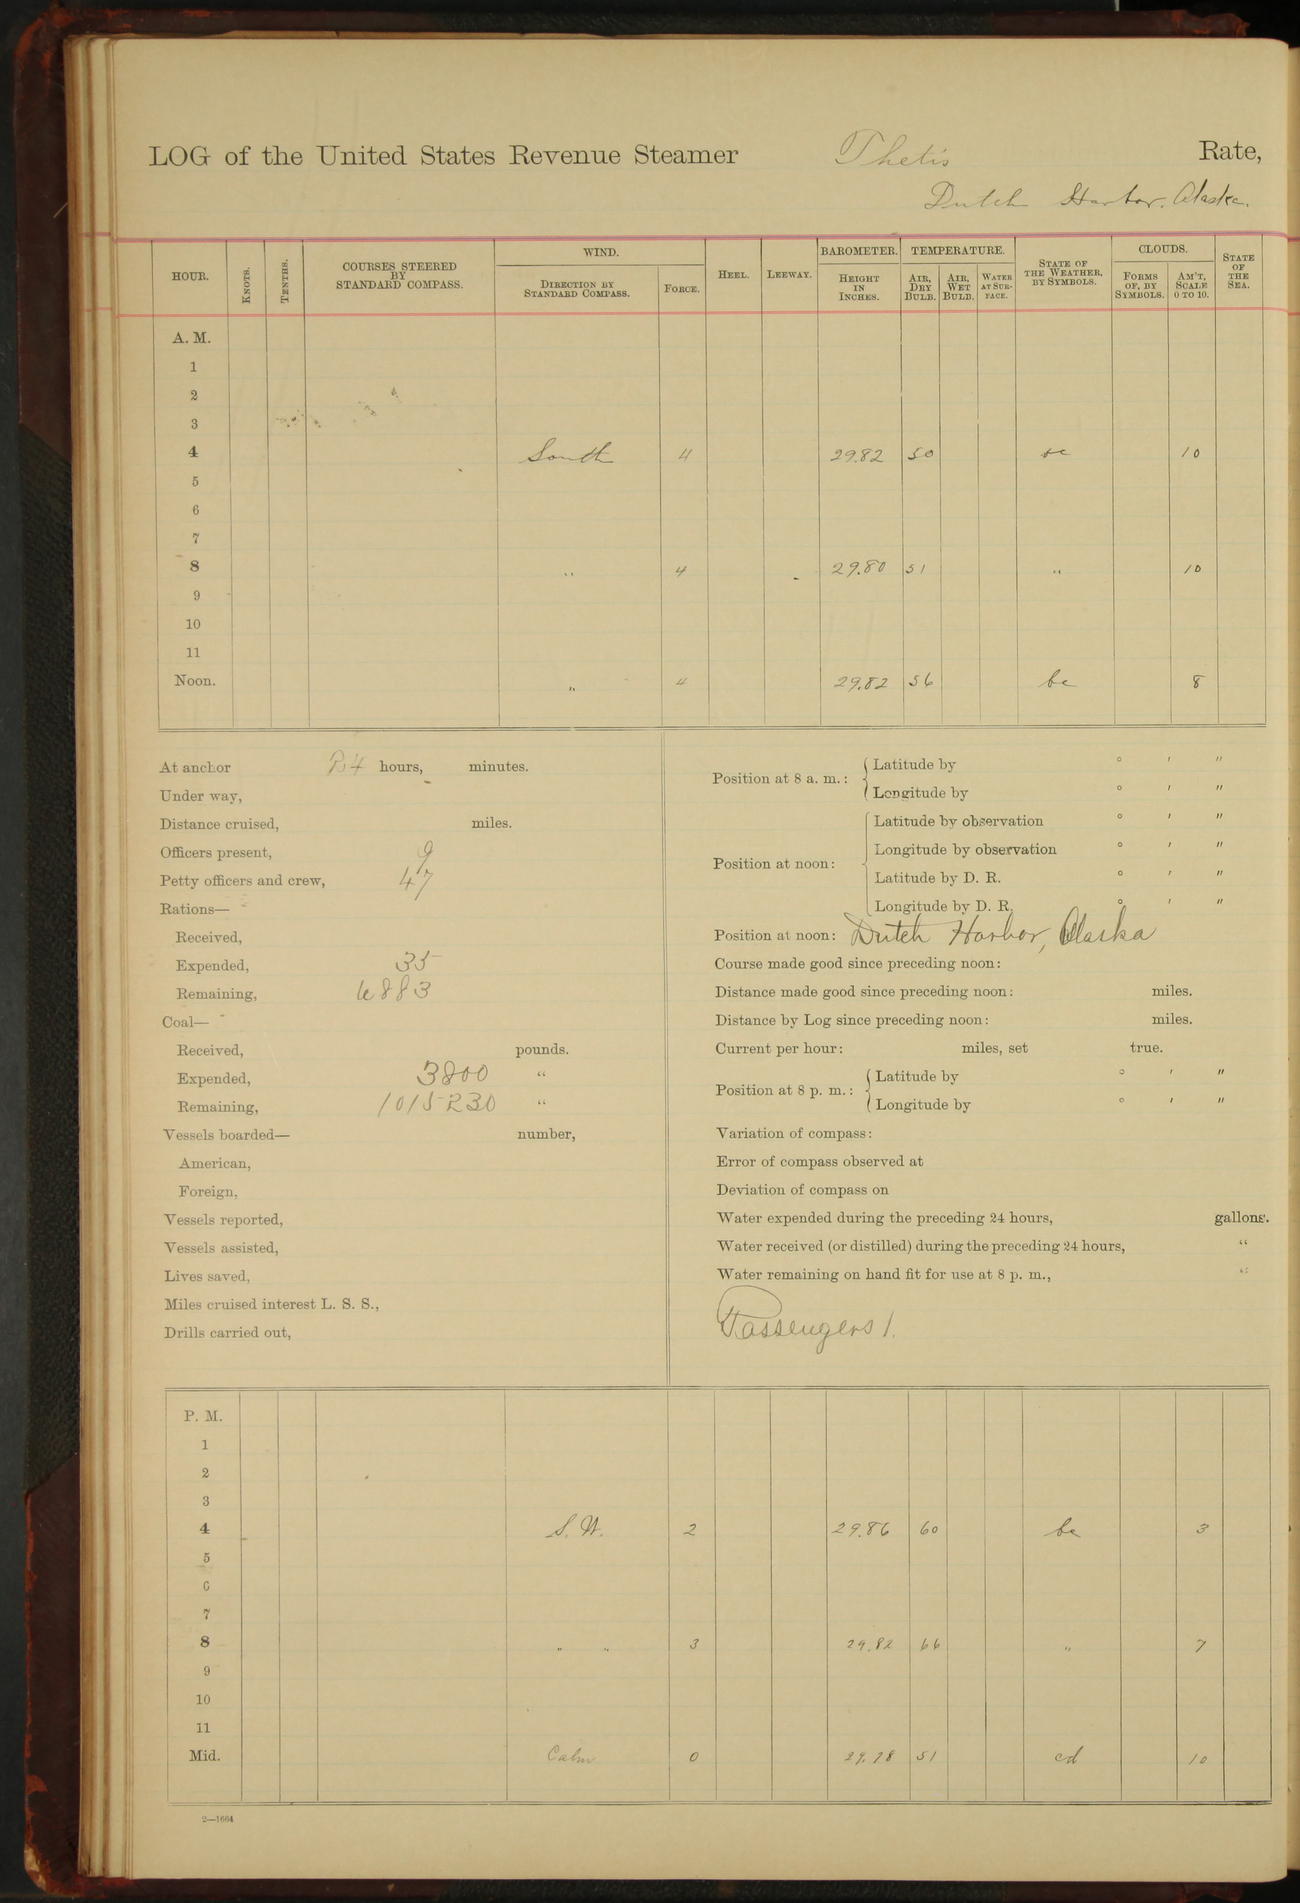 LOG of the United States Revenue Steamer Thetis Rate,
Dutch Harbor. Alaska.
HOUR. KNOTS. TENTHS. COURSES STEERED BY STANDARD COMPASS. WIND. DIRECTION BY STANDARD COMPASS. FORCE. HEEL. LEEWAY. BAROMETER. HEIGHT IN INCHES. TEMPERATURE. AIR, DRY BULB. AIR, WET BULB. WATER AT SURFACE. STATE OF THE WEATHER, BY SYMBOLS. CLOUDS. FORMS OF, BY SYMBOLS. AM'T, SCALE 0 TO 10. STATE OF THE SEA.
A. M.
1
2
3
4 South 4 29.82 50 10
5
6
7
8 " 4 29.80 51 " 10
9
10
11
Noon. " 4 29.82 56 bc 8
At anchor 24 hours, minutes.
Under way,
Distance cruised, miles.
Officers present, 9
Petty officers and crew, 47
Rations—
Received,
Expended, 35
Remaining, 6883
Coal—
Received, pounds.
Expended, 3800 "
Remaining, 1015230 "
Vessels boarded— number,
American,
Foreign,
Vessels reported,
Vessels assisted,
Lives saved,
Miles cruised interest L. S. S.,
Drills carried out,
Position at 8 a. m.: Latitude by ° ′ ″
Longitude by ° ′ ″
Position at noon: Latitude by observation ° ′ ″
Longitude by observation ° ′ ″
Latitude by D. R. ° ′ ″
Longitude by D. R. ° ′ ″
Position at noon: Dutch Harbor, Alaska
Course made good since preceding noon:
Distance made good since preceding noon: miles.
Distance by Log since preceding noon: miles.
Current per hour: miles, set true.
Position at 8 p. m.: Latitude by ° ′ ″
Longitude by ° ′ ″
Variation of compass:
Error of compass observed at
Deviation of compass on
Water expended during the preceding 24 hours, gallons.
Water received (or distilled) during the preceding 24 hours, "
Water remaining on hand fit for use at 8 p. m., "
Passengers 1.
P. M.
1
2
3
4 S. W. 2 29.86 60 bc 3
5
6
7
8 " " 3 29.82 66 " 7
9
10
11
Mid. Calm 0 29.78 51 cd 10
2—1664